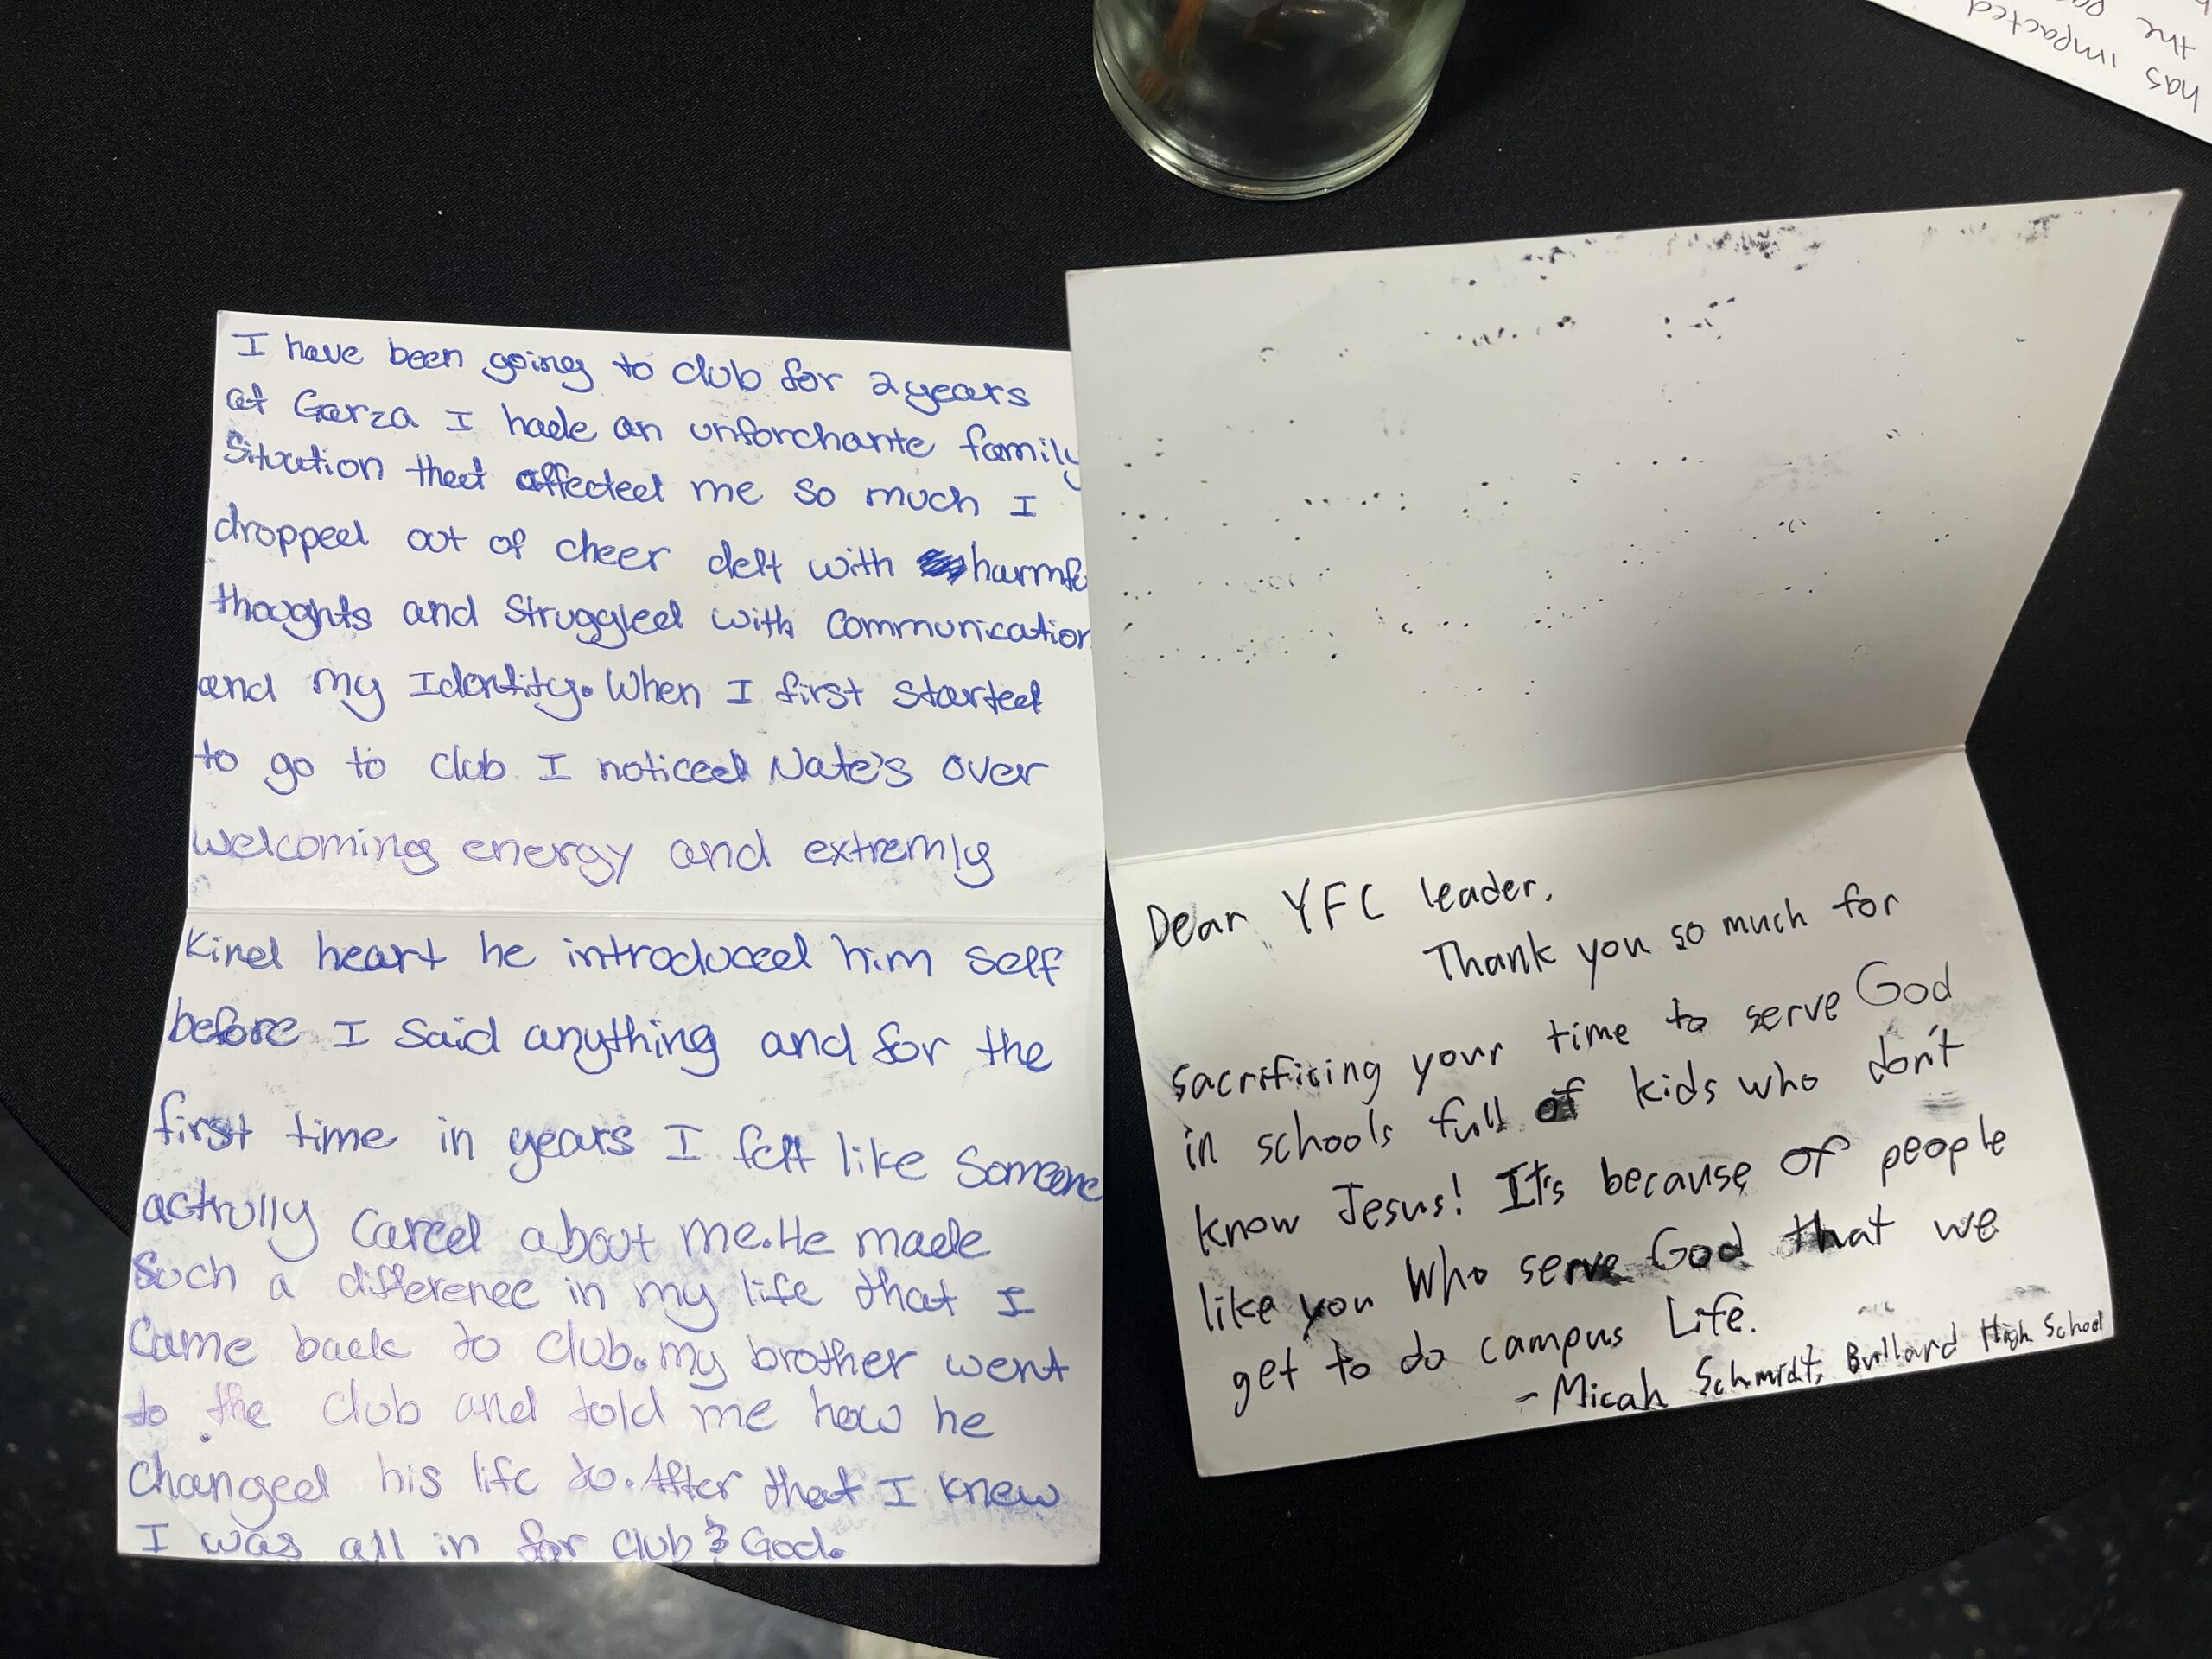 I have been going to club for 2 years
at Garza I hade an unforchante family
Situation that affected me so much I
dropped out of cheer delt with harmf
thoughts and Struggled with Communication
and my Identity. When I first started
to go to club I noticed Nate's over
welcoming energy and extremly
Kind heart he introduced him self
before I said anything and for the
first time in years I felt like Someone
actully cared about me. He made
Such a difference in my life that I
Came back to club. my brother went
to the club and told me how he
Changed his life to. After that I knew
I was all in for club & God.
Dear YFC leader,
Thank you so much for
sacrificing your time to serve God
in schools full of kids who don't
know Jesus! It's because of people
like you who serve God that we
get to do campus Life.
- Micah Schmidt, Bullard High School
has impacted
the